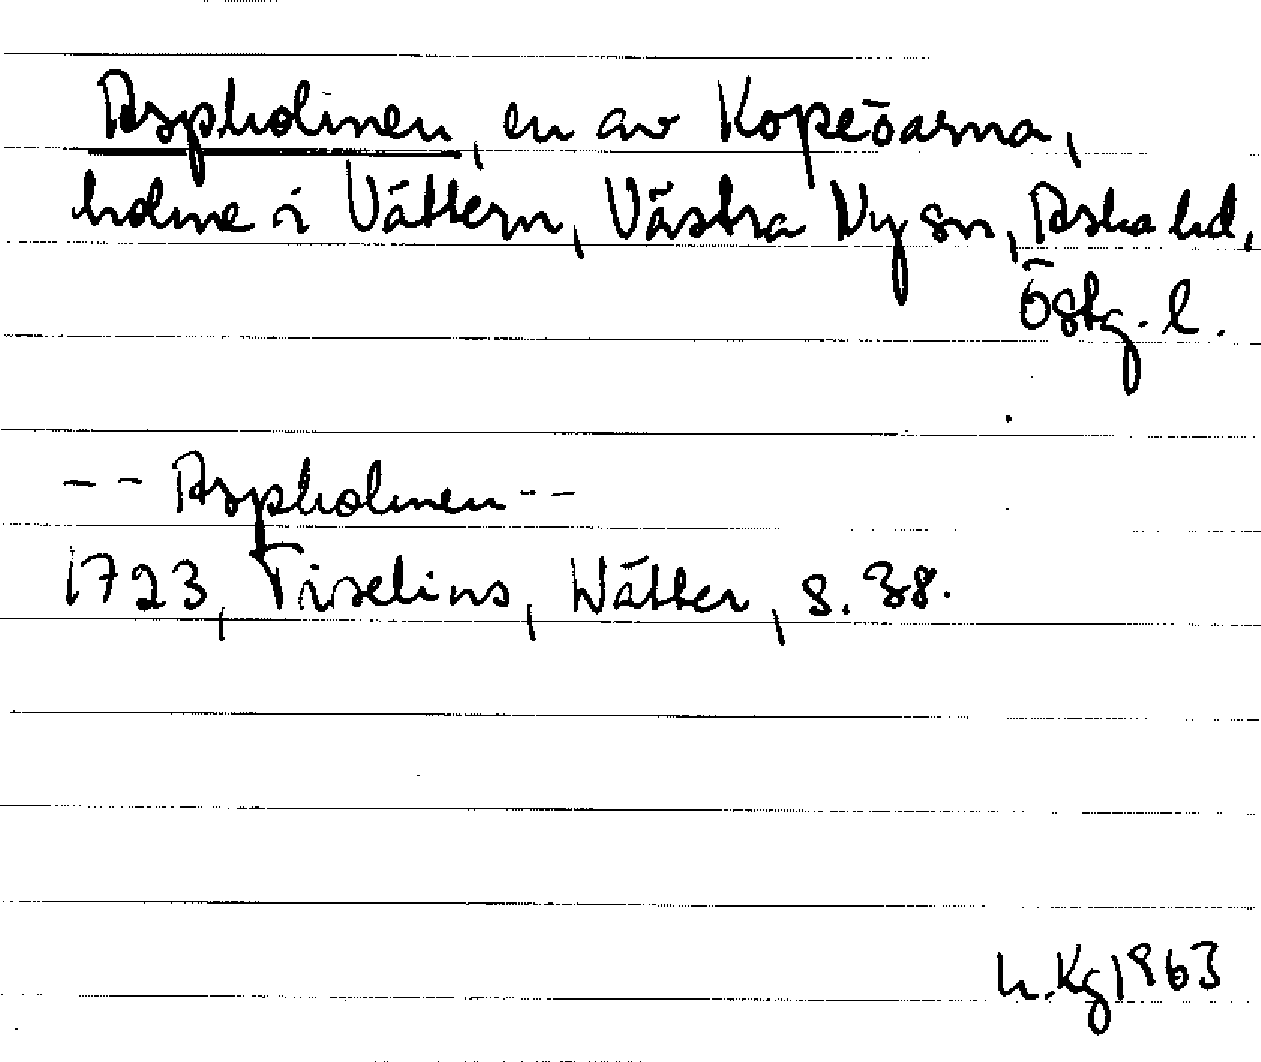 Aspholmen, en av Kopeöarna,
holme i Vättern, Västra Ny sn, Aska hd,
Östg. l.
-- Aspholmen --
1723, Tiselius, Wätter, s. 38.
h. Kg 1963